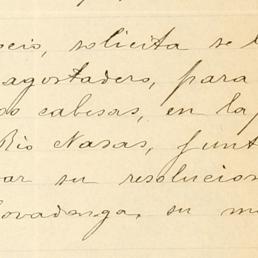 seis, solicita se l
agostadero, para
os cabesas, en la
Rio Nasas, junt
ar su resolucion
ovadonga, su m